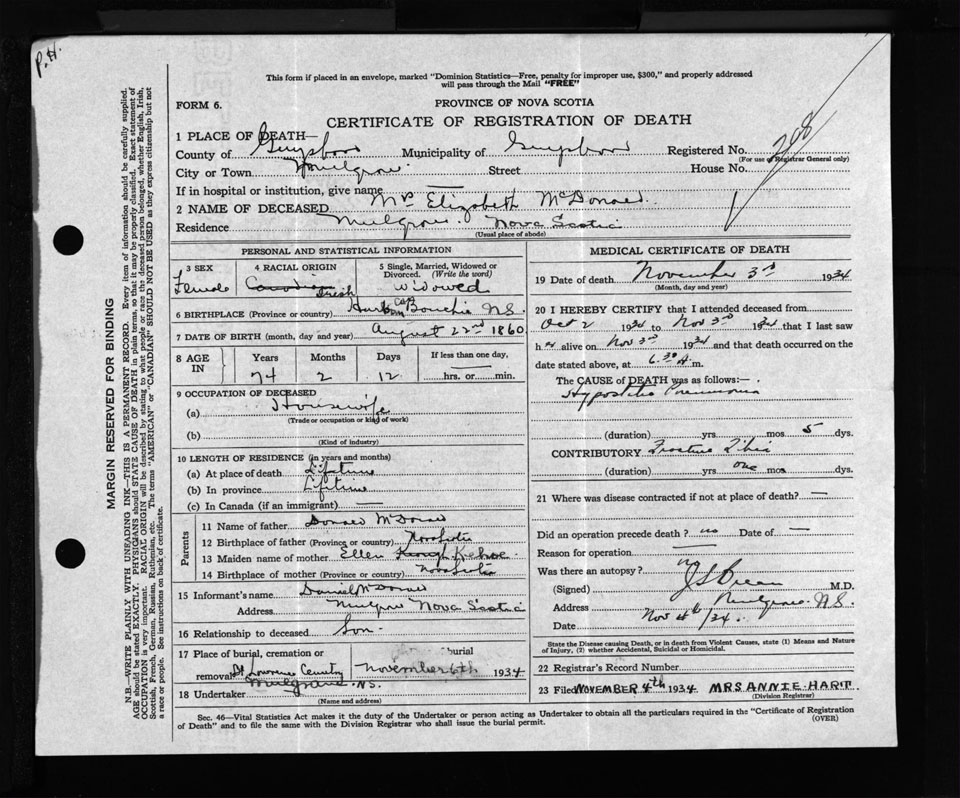 P.H.
This form if placed in an envelope, marked "Dominion Statistics—Free, penalty for improper use, $300," and properly addressed
will pass through the Mail "FREE"
FORM 6.
PROVINCE OF NOVA SCOTIA
CERTIFICATE OF REGISTRATION OF DEATH
1 PLACE OF DEATH—
County of Guysboro Municipality of Guysboro Registered No. 208
(For use of Registrar General only)
City or Town Mulgrave Street House No.
If in hospital or institution, give name —
2 NAME OF DECEASED Mrs Elizabeth McDonald
Residence Mulgrave. Nova Scotia
(Usual place of abode)
PERSONAL AND STATISTICAL INFORMATION
3 SEX
Female
4 RACIAL ORIGIN
Canadian Irish
5 Single, Married, Widowed or Divorced. (Write the word)
Widowed
6 BIRTHPLACE (Province or country) Bouchie N.S.
7 DATE OF BIRTH (month, day and year) August 22nd 1860
8 AGE IN
Years Months Days If less than one day,
74 2 12 hrs. or min.
9 OCCUPATION OF DECEASED
(a) Housewife
(Trade or occupation or kind of work)
(b)
(Kind of industry)
10 LENGTH OF RESIDENCE (in years and months)
(a) At place of death Lifetime
(b) In province Lifetime
(c) In Canada (if an immigrant) —
Parents
11 Name of father Donald McDonald
12 Birthplace of father (Province or country) Nova Scotia
13 Maiden name of mother Ellen Kehoe
14 Birthplace of mother (Province or country) Nova Scotia
15 Informant's name Daniel McDonald
Address Mulgrave Nova Scotia
16 Relationship to deceased Son
17 Place of burial, cremation or removal
burial
Cemetery November 6th 1934
18 Undertaker Mulgrave N.S.
(Name and address)
MEDICAL CERTIFICATE OF DEATH
19 Date of death November 3rd 1934
(Month, day and year)
20 I HEREBY CERTIFY that I attended deceased from
Oct 2 1934 to Nov 3rd 1934 that I last saw
h er alive on Nov 3rd 1934 and that death occurred on the
date stated above, at 6.30 A. m.
The CAUSE of DEATH was as follows:—
Hypostatic Pneumonia
(duration) yrs mos 5 dys.
CONTRIBUTORY Fracture Tibia
(duration) yrs one mos dys.
21 Where was disease contracted if not at place of death? —
Did an operation precede death? no Date of —
Reason for operation —
Was there an autopsy? no
(Signed) M.D.
Address Mulgrave N.S.
Date Nov 4th/34.
State the Disease causing Death, or in death from Violent Causes, state (1) Means and Nature
of Injury, (2) whether Accidental, Suicidal or Homicidal.
22 Registrar's Record Number
23 Filed NOVEMBER 4th 1934 MRS ANNIE HART
(Division Registrar)
Sec. 46—Vital Statistics Act makes it the duty of the Undertaker or person acting as Undertaker to obtain all the particulars required in the "Certificate of Registration
of Death" and to file the same with the Division Registrar who shall issue the burial permit.
(OVER)
MARGIN RESERVED FOR BINDING
N.B.—WRITE PLAINLY WITH UNFADING INK—THIS IS A PERMANENT RECORD. Every item of information should be carefully supplied.
AGE should be stated EXACTLY. PHYSICIANS should STATE CAUSE OF DEATH in plain terms, so that it may be properly classified. Exact statement of
OCCUPATION is very important. RACIAL ORIGIN will be described by stating to what people or race the deceased person belonged, whether English, Irish,
Scottish, French, German, Russian, Ruthenian, etc. The terms "AMERICAN" or "CANADIAN" SHOULD NOT BE USED as they express citizenship but not
a race or people. See instructions on back of certificate.